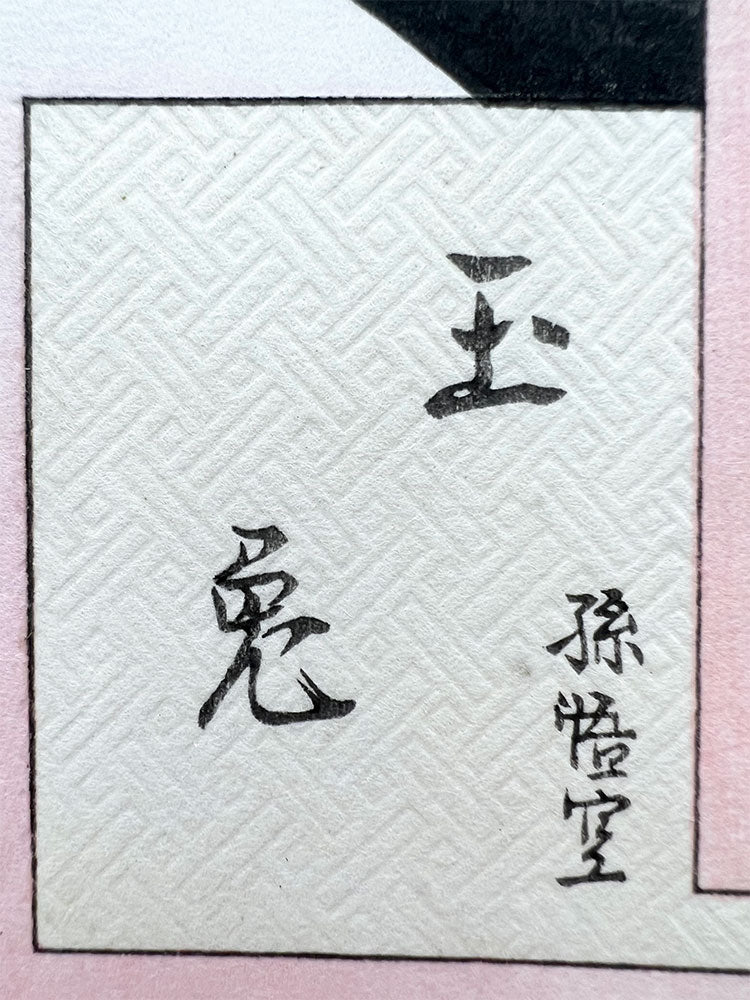 玉兎
孫悟空